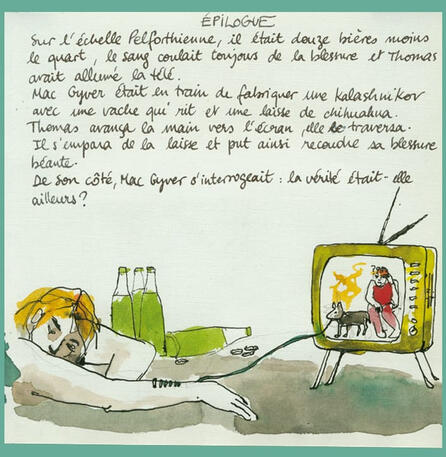 ÉPILOGUE
Sur l'échelle Pelforthienne, il était douze bières moins
le quart, le sang coulait toujours de la blessure et Thomas
avait allumé la télé.
Mac Gyver était en train de fabriquer une Kalashnikov
avec une vache qui rit et une laisse de chihuahua.
Thomas avança la main vers l'écran, elle le traversa.
Il s'empara de la laisse et put ainsi recoudre sa blessure
béante.
De son côté, Mac Gyver s'interrogeait : la vérité était-elle
ailleurs ?